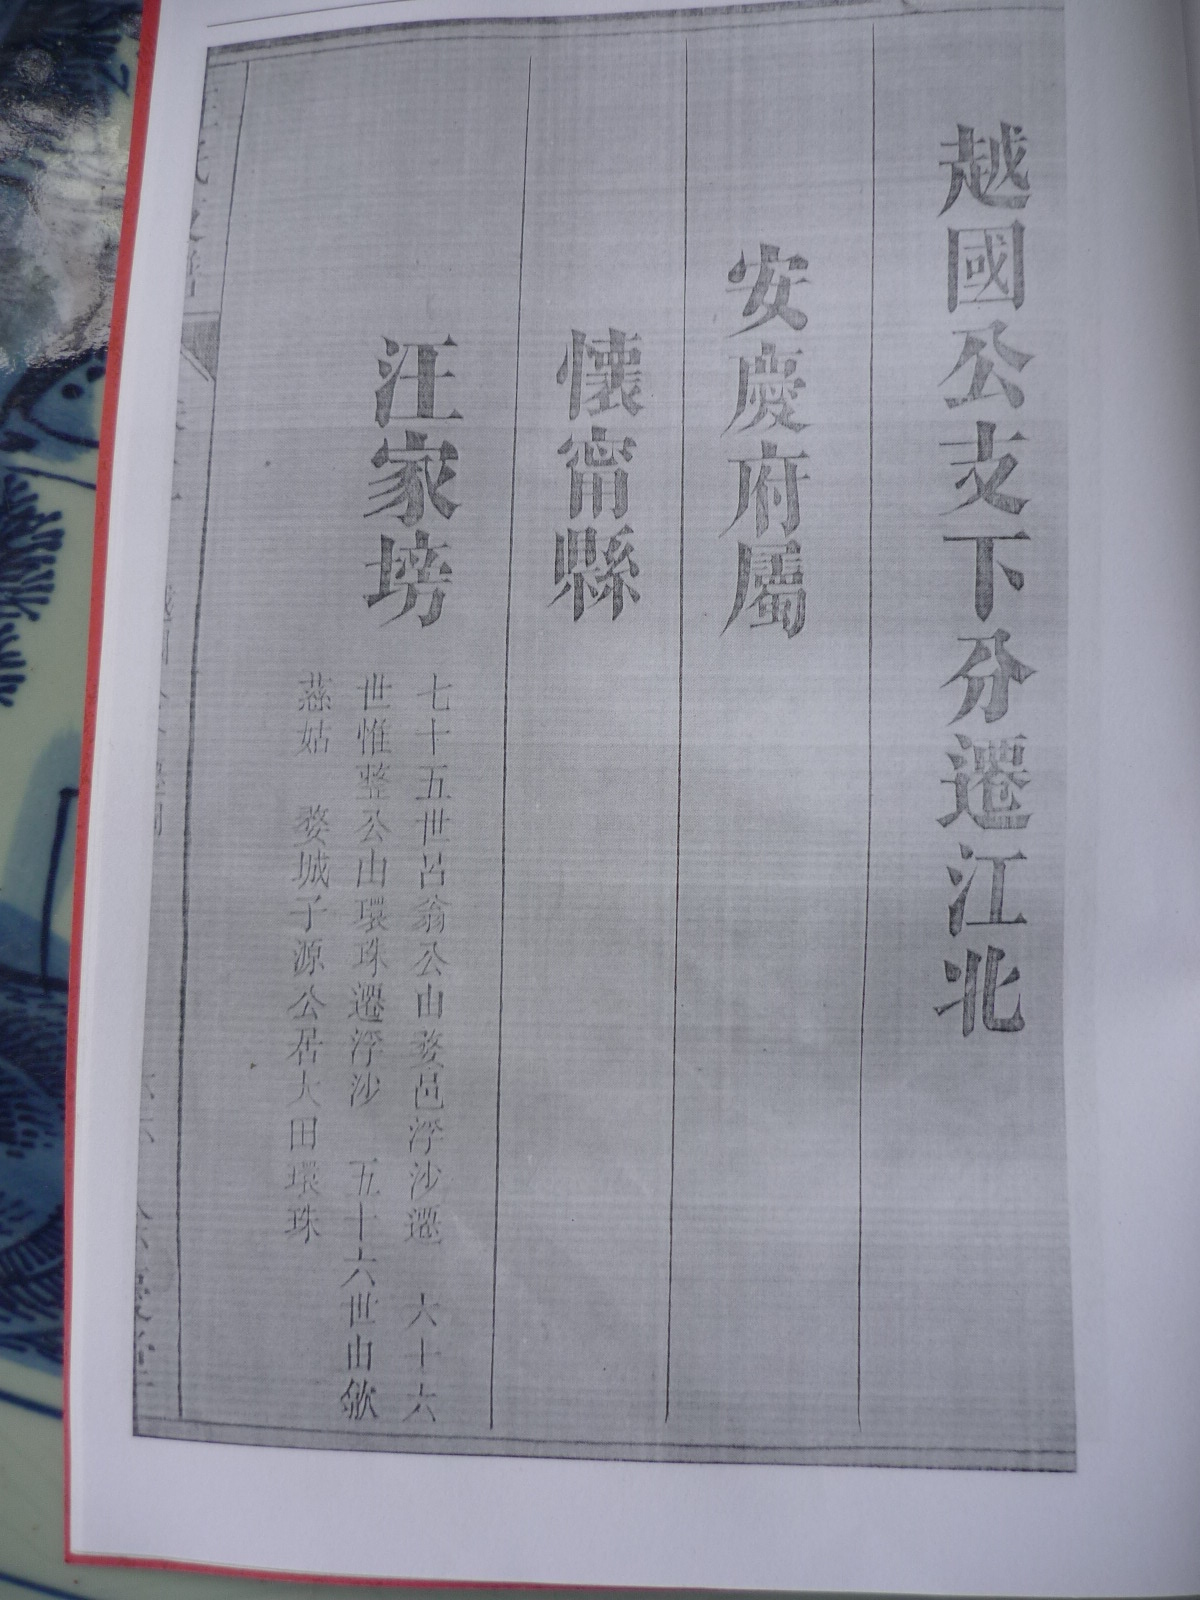 越國公支下分遷江北
安慶府屬
懷甯縣
汪家塝
七十五世呂翁公由婺邑浮沙遷　六十六
世惟整公由環珠遷浮沙　五十六世由歙
燕姑　婺城子源公居大田環珠